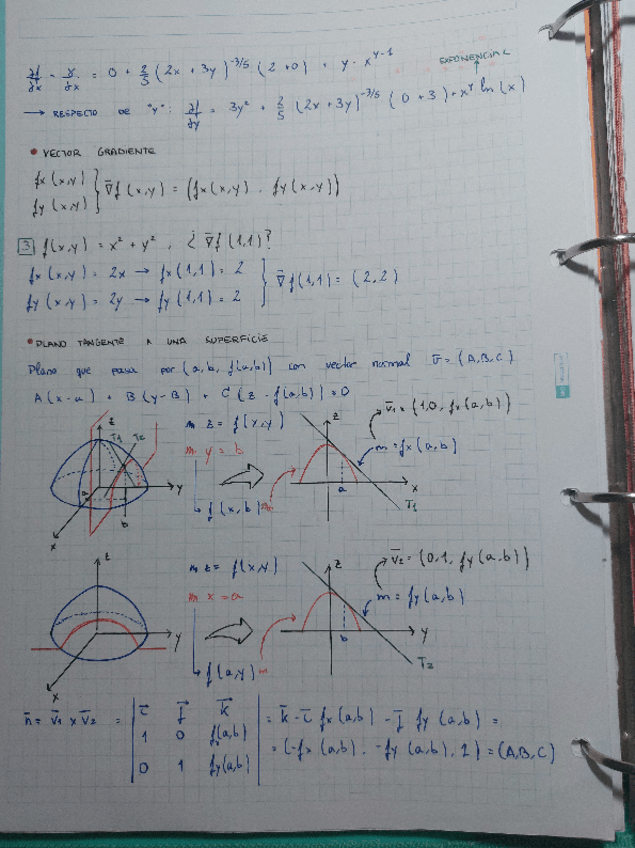 ∂f/∂x = ∂/∂x = 0 + 2/5 (2x + 3y)^-3/5 (2+0) + y · x^y-1
EXPONENCIAL
→ RESPECTO DE "y": ∂f/∂y = 3y² + 2/5 (2x + 3y)^-3/5 (0+3) + x^y ln(x)
• VECTOR GRADIENTE
fx(x,y)
fy(x,y) } ∇f(x,y) = (fx(x,y), fy(x,y))
3 f(x,y) = x² + y², ¿∇f(1,1)?
fx(x,y) = 2x → fx(1,1) = 2
fy(x,y) = 2y → fy(1,1) = 2 } ∇f(1,1) = (2,2)
• PLANO TANGENTE A UNA SUPERFICIE
Plano que pasa por (a,b, f(a,b)) con vector normal v = (A,B,C)
A(x-a) + B(y-B) + C(z-f(a,b)) = 0
z T1 T2 y x a b
m z = f(x,y)
m y = b
↳ f(x,b)
z v1 = (1,0, fx(a,b))
m = fx(a,b)
a x T1
z y x
m z = f(x,y)
m x = a
↳ f(a,y)
z v2 = (0,1, fy(a,b))
m = fy(a,b)
b y T2
n = v1 x v2 = | i j k | = k - i fx(a,b) - j fy(a,b) =
1 0 fx(a,b)
= (-fx(a,b), -fy(a,b), 1) = (A,B,C)
0 1 fy(a,b)